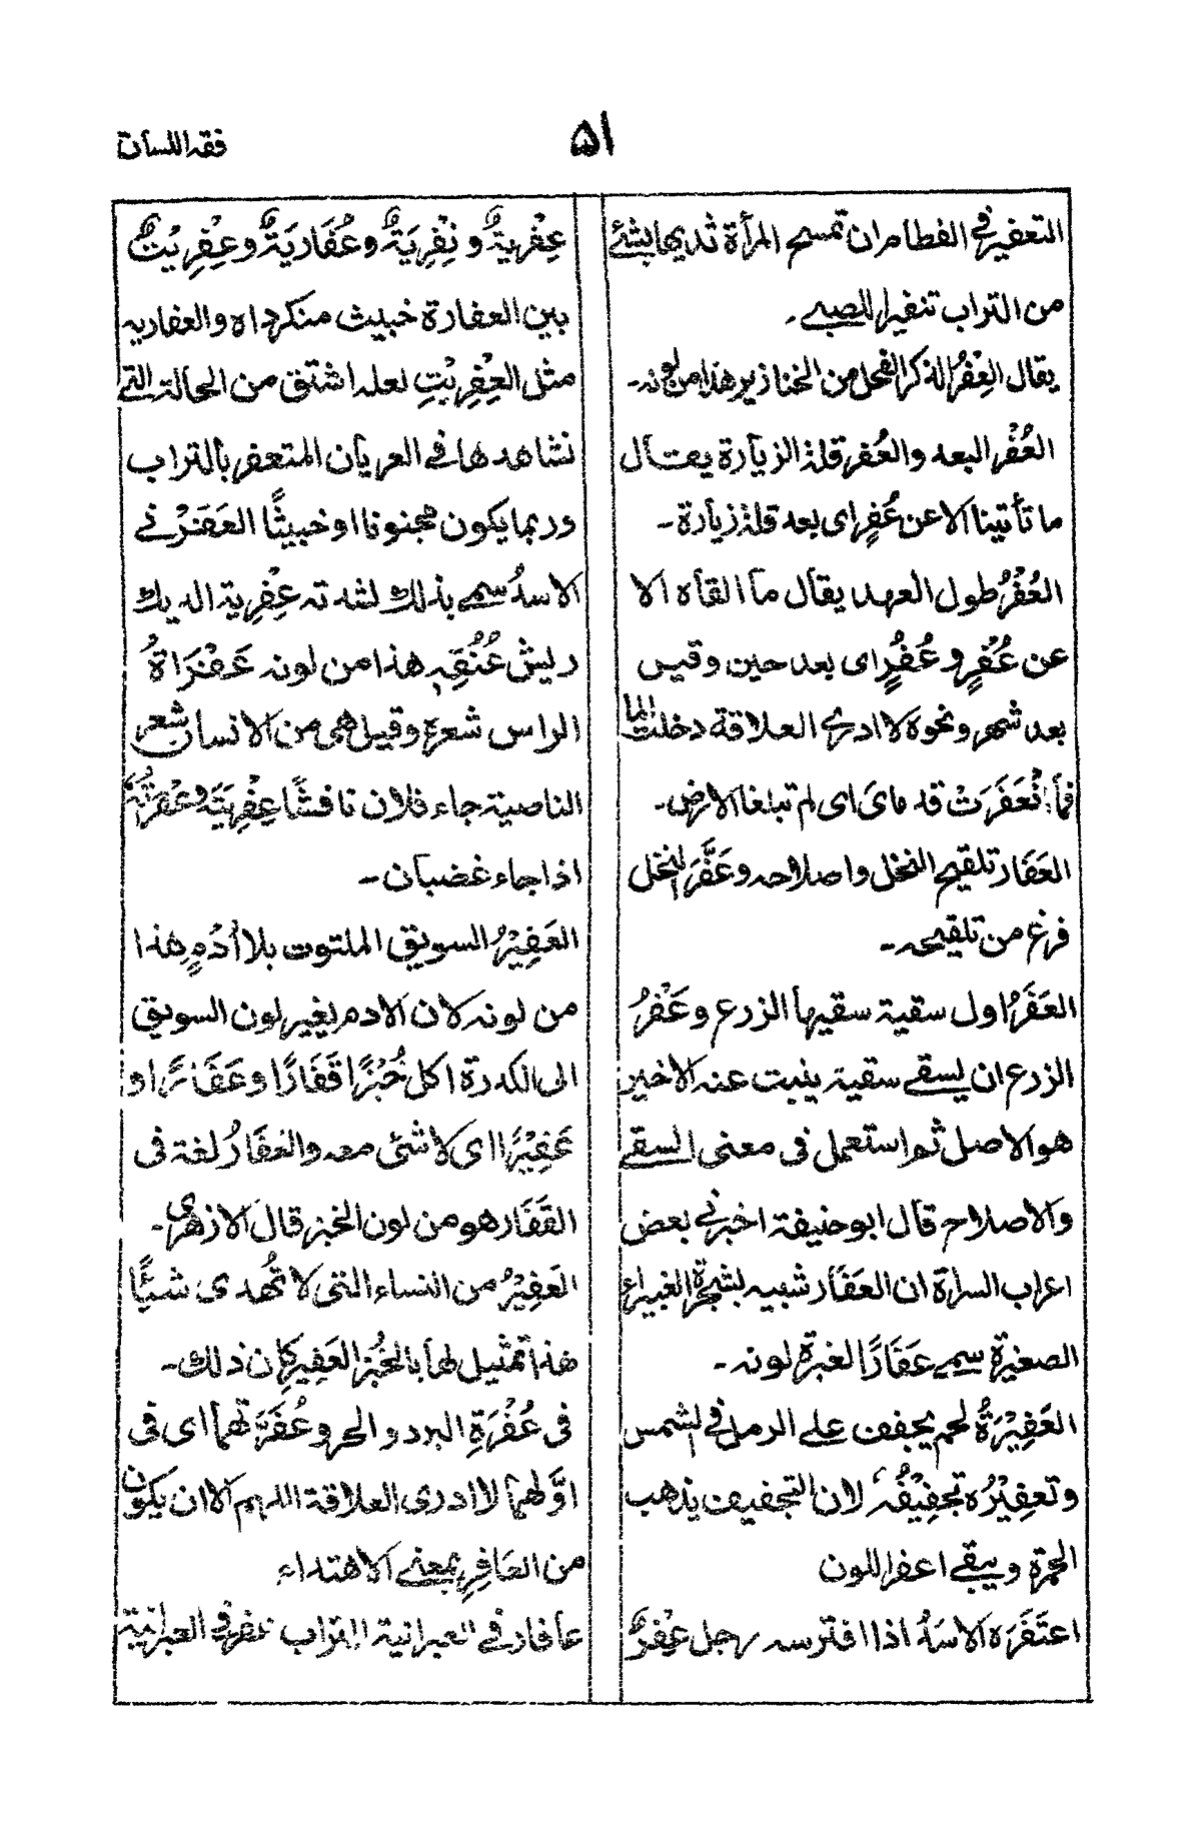 فقه اللسان
٥١
التعفير فی الفطام ان تمسح المرأة ثديها بشئے
من التراب تنفيرا للصبے ۔
يقال العِفْرُ الذكر الفحل من الخنازير هذا من لونه ۔
العُفْر البعد والعُفر قلة الزيارة يقال
ما تأتينا الا عن عُفرٍ ای بعد قلة زيارة ۔
العُفْرُ طول العهد يقال ما القاه الا
عن عُفْرٍ و عُفُرٍ ای بعد حين وقيس
بعد شهر ونحوه لا ادرے العلاقة دخلت الما
فما انْعَفَرَتْ قدمای ای لم تبلغا الارض ۔
العَفَار تلقيح النخل واصلاحه وعَفَّرَ النخل
فرغ من تلقيحه ۔
العَفَرُ اول سقية سقيها الزرع وعَفْرُ
الزرع ان يسقے سقية ينبت عنه الاخير
هو الاصل ثم استعمل فی معنی السقے
والاصلاح قال ابو حنيفة اخبرنے بعض
اعراب السراة ان العَفَار شبيه بشجرة الغبيراء
الصغيرة سمے عَفَارًا لغبرة لونه ۔
العَفِيْرَةُ لحم يجفف علے الرمل فی الشمس
وتعفِيْرُه تجفِيْفُه لان التجفيف يذهب
الحمرة ويبقے اعفر اللون
اعتَفَرَه الاسَدُ اذا افترسه رجل عِفْرٌ
عِفْرِيةٌ و نِفْرِيَةٌ وعُفَارِيَةٌ وعِفْرِيْتٌ
بين العفارة خبيث منكر داه والعفاريه
مثل العِفْرِيْتِ لعله اشتق من الحالة التے
نشاهدها فے العريان المتعفر بالتراب
وربما يكون مجنونا او خبيثًا العَفَرْنےٰ
الاسدُ سمے بذلك لشدته عِفْرِية الديك
ريش عُنُقِهٖ هذا من لونه عَفْرَاةُ
الراس شعره وقيل هی من الانسان شعر
الناصية جاء فلان نافشًا عِفْرِيَتَه وعَفْرَتَهُ
اذا جاء غضبان ۔
العَفِيْرُ السويق الملتوت بلا أُدْمٍ هذا
من لونه لان الادم يغير لون السويق
الی الكدرة اكل خُبْزًا قَفَارًا وعَفَارًا و
عَفِيْرًا ای لا شئی معه والعَفَارُ لغة فی
القَفَار هو من لون الخبز قال الازهری ۔
العَفِيْرُ من النساء التی لا تُهدی شيئًا
هذا تمثيل لها بالخبز العَفِيرِ كان ذلك ۔
فی عُفْرَةِ البرد والحر وعُفُرَّتهما ای فی
اوَّلهما لا ادری العلاقة اللهم الا ان يكون
من العَافِر بمعنے الاهتداء
عافار فے العبرانية التراب عفر فی العبرانية